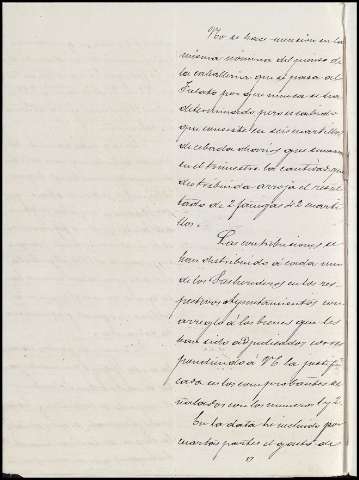 No se hace mencion en la
misma nómina del pienso de
la caballeria que se pasa al
Zelato por que nunca se ha
determinado pero es sabido
que consiste en seis cuartillos
de cebada diarios que suman
en el trimestre la cantidad que
distribuida arroja el resul
tado de 2 fanegas 42 cuarti
llos.
Las contribuciones se
han distribuido á cada uno
de los Herederos en los res-
pectivos Ayuntamientos con
arreglo á los bienes que les
han sido adjudicados corres
pondiendo á la justifi
cada en los comprobantes se
ñalados con los numeros 1 y 2.
En la data he incluido por
cuartas partes el gasto de